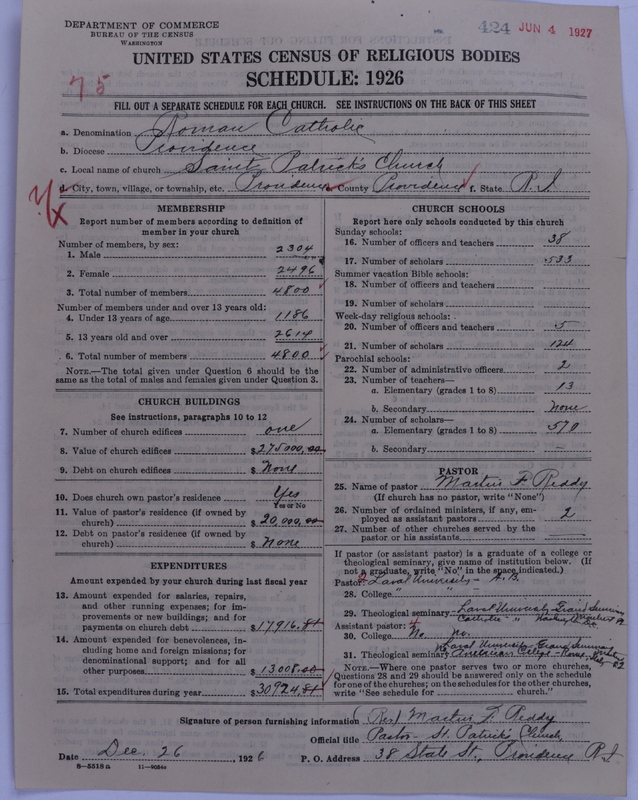 DEPARTMENT OF COMMERCE
BUREAU OF THE CENSUS
WASHINGTON
424 JUN 4 1927
UNITED STATES CENSUS OF RELIGIOUS BODIES
SCHEDULE: 1926
75
FILL OUT A SEPARATE SCHEDULE FOR EACH CHURCH. SEE INSTRUCTIONS ON THE BACK OF THIS SHEET
a. Denomination Roman Catholic
b. Diocese Providence
c. Local name of church Saint Patrick's Church
d. City, town, village, or township, etc. Providence County Providence f. State R. I.
MEMBERSHIP
Report number of members according to definition of
member in your church
Number of members, by sex:
1. Male 2304
2. Female 2496
3. Total number of members 4800
Number of members under and over 13 years old:
4. Under 13 years of age 1186
5. 13 years old and over 2614
6. Total number of members 4800
NOTE.—The total given under Question 6 should be
same as the total of males and females given under Question 3.
CHURCH BUILDINGS
See instructions, paragraphs 10 to 12
7. Number of church edifices one
8. Value of church edifices $275000,00
9. Debt on church edifices $ None
10. Does church own pastor's residence Yes
Yes or No
11. Value of pastor's residence (if owned by
church) $ 20,000,00
12. Debt on pastor's residence (if owned by
church) $ None
EXPENDITURES
Amount expended by your church during last fiscal year
13. Amount expended for salaries, repairs,
and other running expenses; for im-
provements or new buildings; and for
payments on church debt $17916.84
14. Amount expended for benevolences, in-
cluding home and foreign missions; for
denominational support; and for all
other purposes $13008.00
15. Total expenditures during year $30924.84
CHURCH SCHOOLS
Report here only schools conducted by this church
Sunday schools:
16. Number of officers and teachers 38
17. Number of scholars 533
Summer vacation Bible schools:
18. Number of officers and teachers
19. Number of scholars
Week-day religious schools:
20. Number of officers and teachers 5
21. Number of scholars 124
Parochial schools:
22. Number of administrative officers 2
23. Number of teachers—
a. Elementary (grades 1 to 8) 13
b. Secondary None
24. Number of scholars—
a. Elementary (grades 1 to 8) 570
b. Secondary
PASTOR
25. Name of pastor Martin F. Reddy
(If church has no pastor, write "None")
26. Number of ordained ministers, if any, em-
ployed as assistant pastors 2
27. Number of other churches served by the
pastor or his assistants
If pastor (or assistant pastor) is a graduate of a college or
theological seminary, give name of institution below. (If
not a graduate, write "No" in the space indicated.)
Pastor: Laval University - A. B.
28. College " "
29. Theological seminary Laval University Grand Seminary
Catholic "
Assistant pastor:
30. College No. no.
Laval University Grand Seminary
31. Theological seminary American College - Rome,
NOTE.—Where one pastor serves two or more churches,
Questions 28 and 29 should be answered only on the schedule
for one of the churches; on the schedules for the other churches,
write "See schedule for church."
Signature of person furnishing information (Rev) Martin F. Reddy
Official title Pastor - St. Patrick's Church,
Date Dec. 26, 1926 P. O. Address 38 State St., Providence R. I.
8—5518a 11—9054a